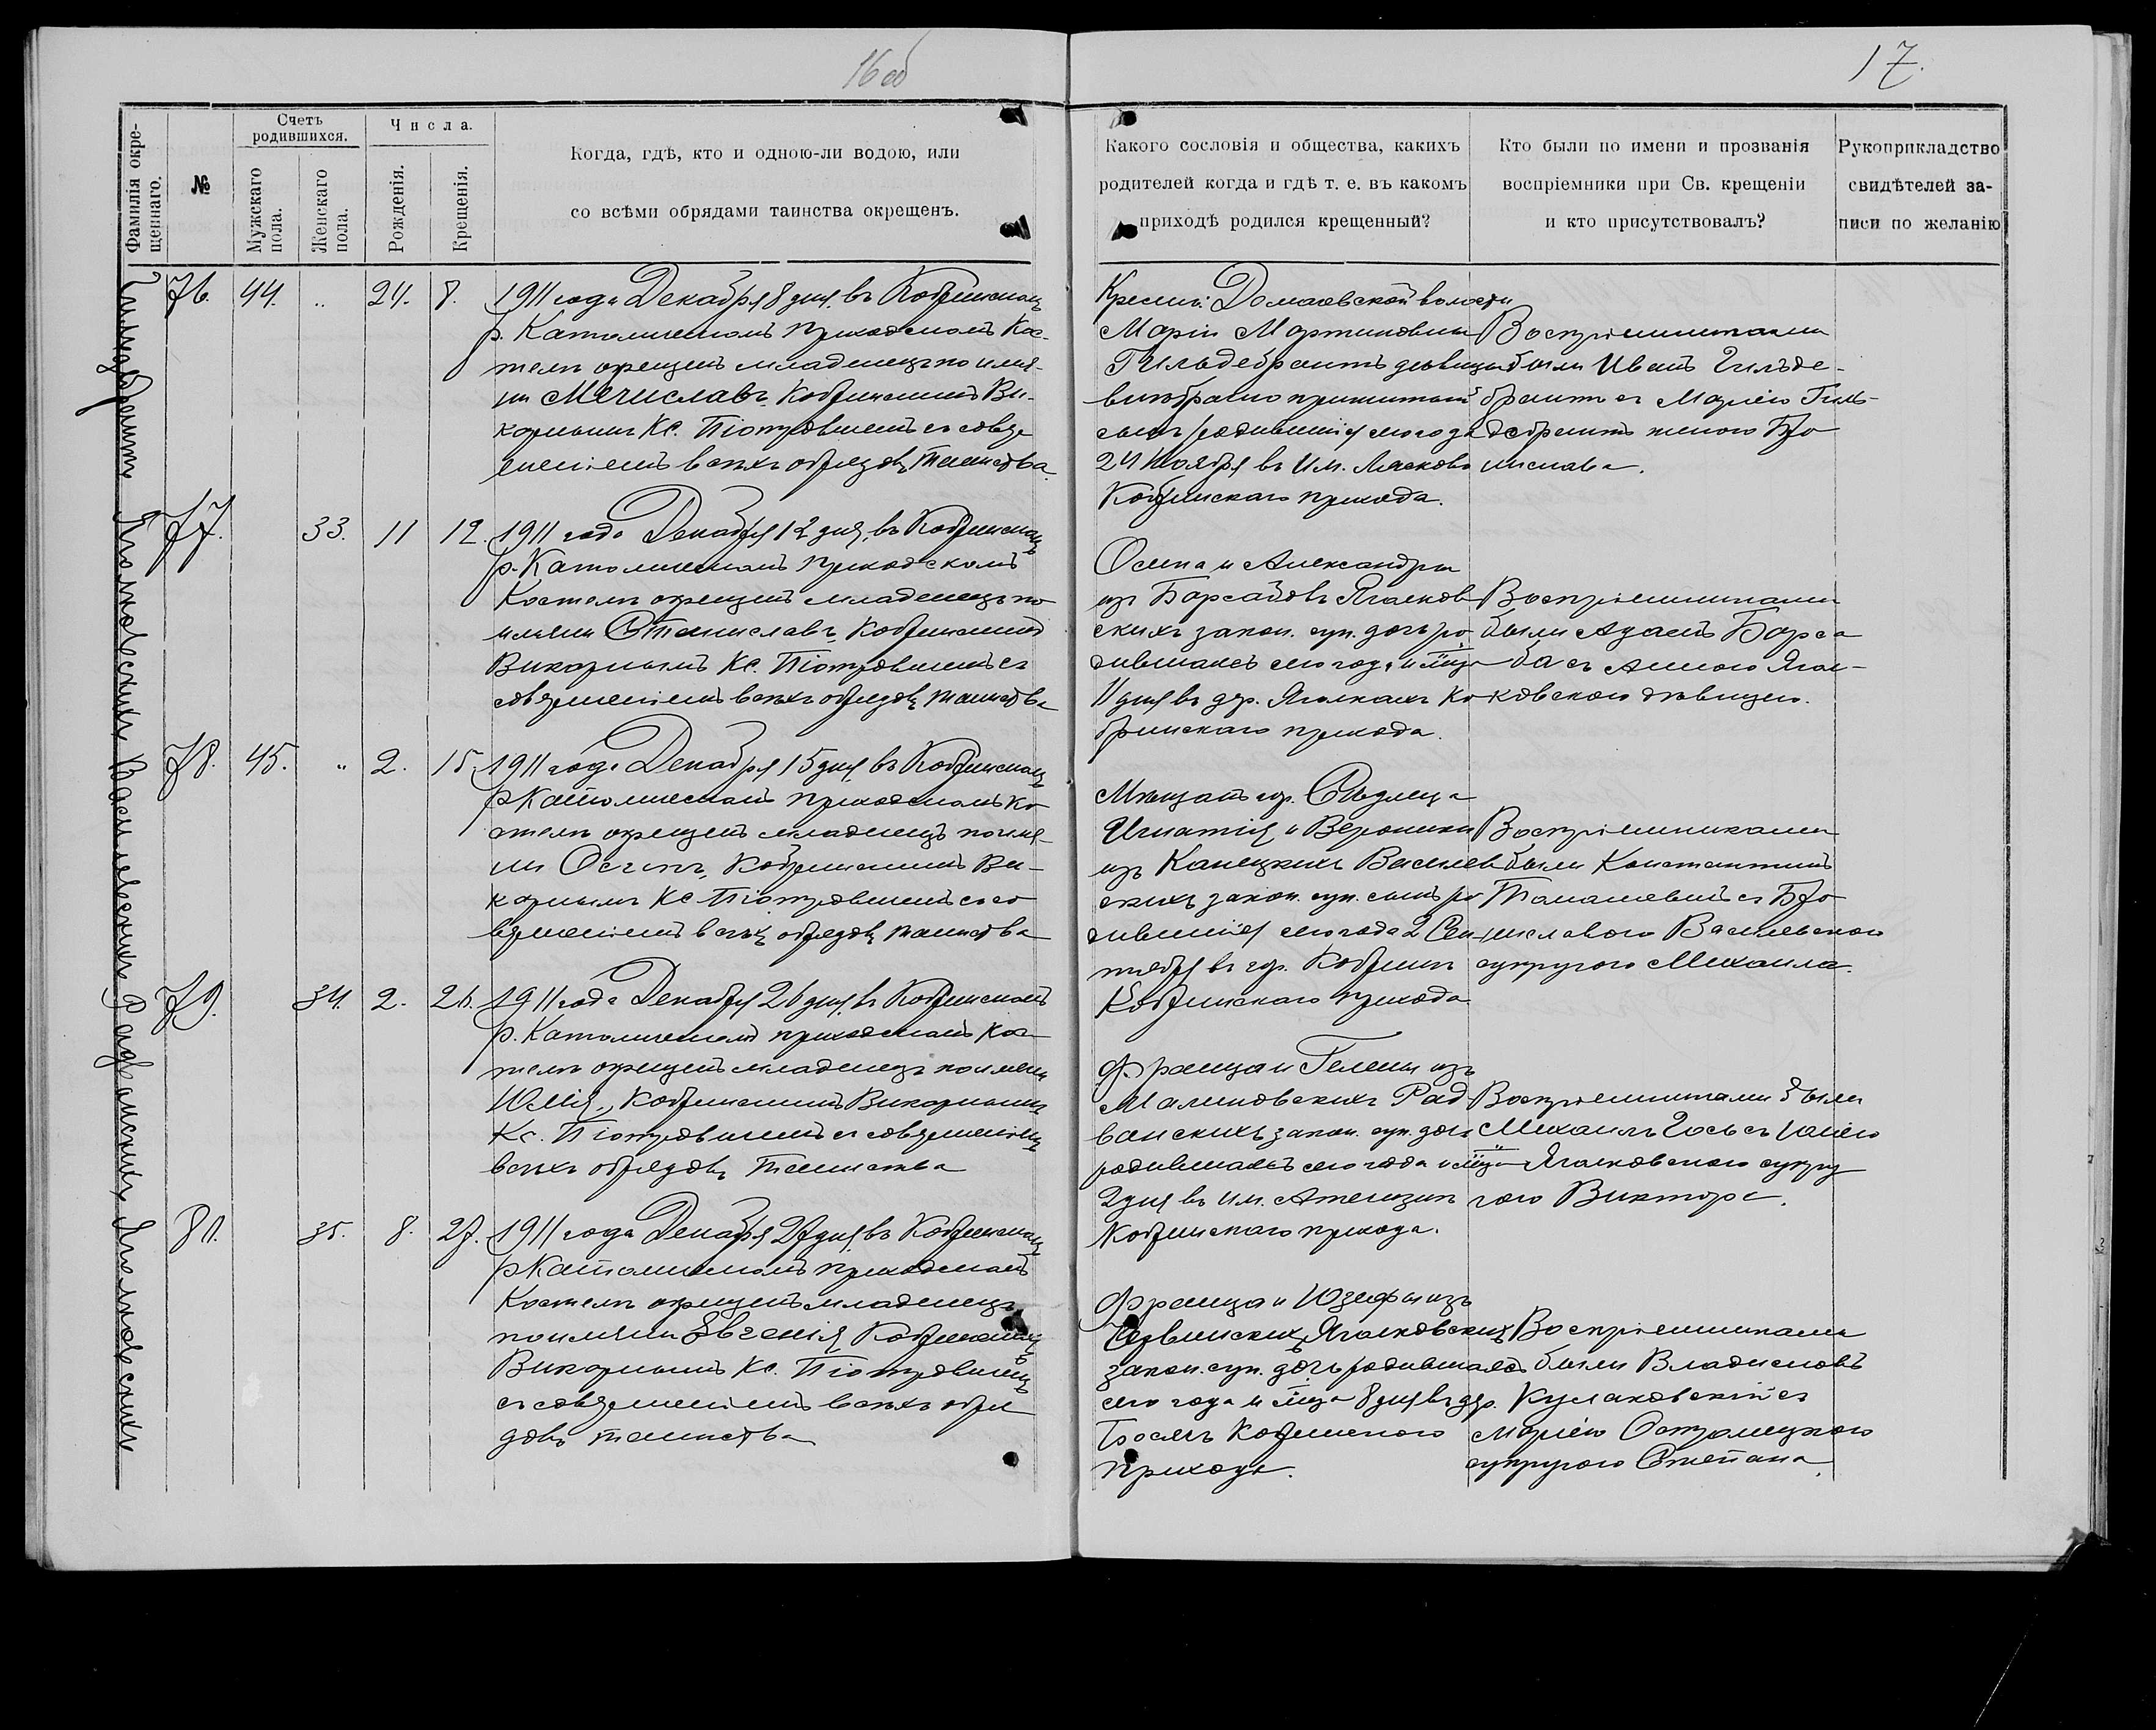 16 об
17.
Фамилія окрещеннаго.
№
Счетъ родившихся.
Мужскаго пола.
Женскаго пола.
Числа.
Рожденія.
Крещенія.
Когда, гдѣ, кто и одною-ли водою, или
со всѣми обрядами таинства окрещенъ.
Какого сословія и общества, какихъ
родителей когда и гдѣ т. е. въ какомъ
приходѣ родился крещенный?
Кто были по имени и прозванія
воспріемники при Св. крещеніи
и кто присутствовалъ?
Рукоприкладство
свидѣтелей за-
писи по желанію
Гильдебрантъ
76. 44. „ 24. 8.
1911 года Декабря 8 дня, въ Кобринскомъ
р. Католическомъ приходскомъ Кос-
телѣ окрещенъ младенецъ по име-
ни Мечиславъ, Кобринскимъ Ви-
карнымъ Кс. Піотровичемъ съ совер
шеніемъ всѣхъ обрядовъ Таинства.
Крестьян. Домачевской волости
Маріи Мартиновны
Гильдебрантъ дѣвицы
внѣбрачно прижитый
сынъ родившійся сего года
24 Ноября въ им. Лясково
Кобринскаго прихода.
Воспріемниками
были Иванъ Гильде-
брантъ съ Маріею Гиль-
дебрантъ женою Бро
нислава.
Ягелковскихъ
77. 33. 11 12.
1911 года Декабря 12 дня, въ Кобринскомъ
р. Католическомъ приходскомъ
Костелѣ окрещенъ младенецъ по
имени Станиславъ, Кобринскимъ
Викарнымъ Кс. Піотровичемъ съ
совершеніемъ всѣхъ обрядовъ таинства
Осипа и Александры
изъ Ягелков
скихъ закон. суп. дочь ро
дившаясь сего года и м-ца
11 дня въ дер. Ягелкахъ Ко
бринскаго прихода.
Воспріемниками
были Адамъ
съ Анною Ягел-
ковскою дѣвицею.
Василевскихъ
78. 45. „ 2. 15.
1911 года Декабря 15 дня, въ Кобринскомъ
р Католическомъ приходскомъ Ко
стелѣ окрещенъ младенецъ по име-
ни Осипъ, Кобринскимъ Ви-
карнымъ Кс Піотровичемъ съ со
вершеніемъ всѣхъ обрядовъ таинства
Мѣщанъ гор. Сѣдлеца
Игнатія и Вероники
изъ Канецкихъ Василев
скихъ закон. суп. сынъ ро
дившійся сего года 2 Сен
тября въ гор. Кобринѣ
Кобринскаго прихода
Воспріемниками
были Константинъ
Томашевичъ съ Бро
ниславою Василевскою
супругою Михаила.
Радванскихъ
79. 34. 2. 26.
1911 года Декабря 26 дня, въ Кобринскомъ
р. Католическомъ приходскомъ Кос
телѣ окрещенъ младенецъ по имени
Юлія, Кобринскимъ Викарнымъ
Кс. Піотровичемъ съ совершеніемъ
всѣхъ обрядовъ Таинства
Франца и Гелены изъ
Малиновскихъ Рад
ванскихъ закон. суп. дочь
родившаясь сего года и м-ца
2 дня въ им.
Кобринскаго прихода.
Воспріемниками были
Михаилъ Гось съ Юліею
Ягелковскою супру
гою Виктора.
Ягелковскихъ
80. 35. 8. 27.
1911 года Декабря 27 дня, въ Кобринскомъ
р Католическомъ приходскомъ
Костелѣ окрещенъ младенецъ
по имени Евгенія, Кобринскимъ
Викарнымъ Кс. Піотровичемъ
съ совершеніемъ всѣхъ обря
довъ таинства
Франца и Юзефы изъ
Червинскихъ Ягелковскихъ
закон. суп. дочь родившаяся
сего года и м-ца 8 дня въ дер.
Босяхъ Кобринскаго
прихода.
Воспріемниками
были Владиславъ
Кулаковскій съ
Маріею Остромецкою
супругою Степана.